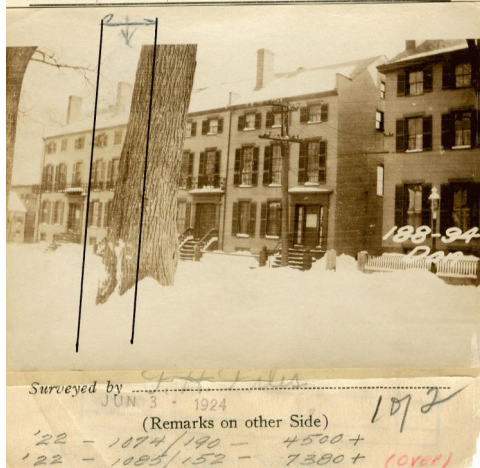 188-94
Dan
Surveyed by F H Files
JUN 3 - 1924
1 of 2
(Remarks on other Side)
'22 - 1074/190 - 4500+
'22 - 1085/152 - 7380+ (over)